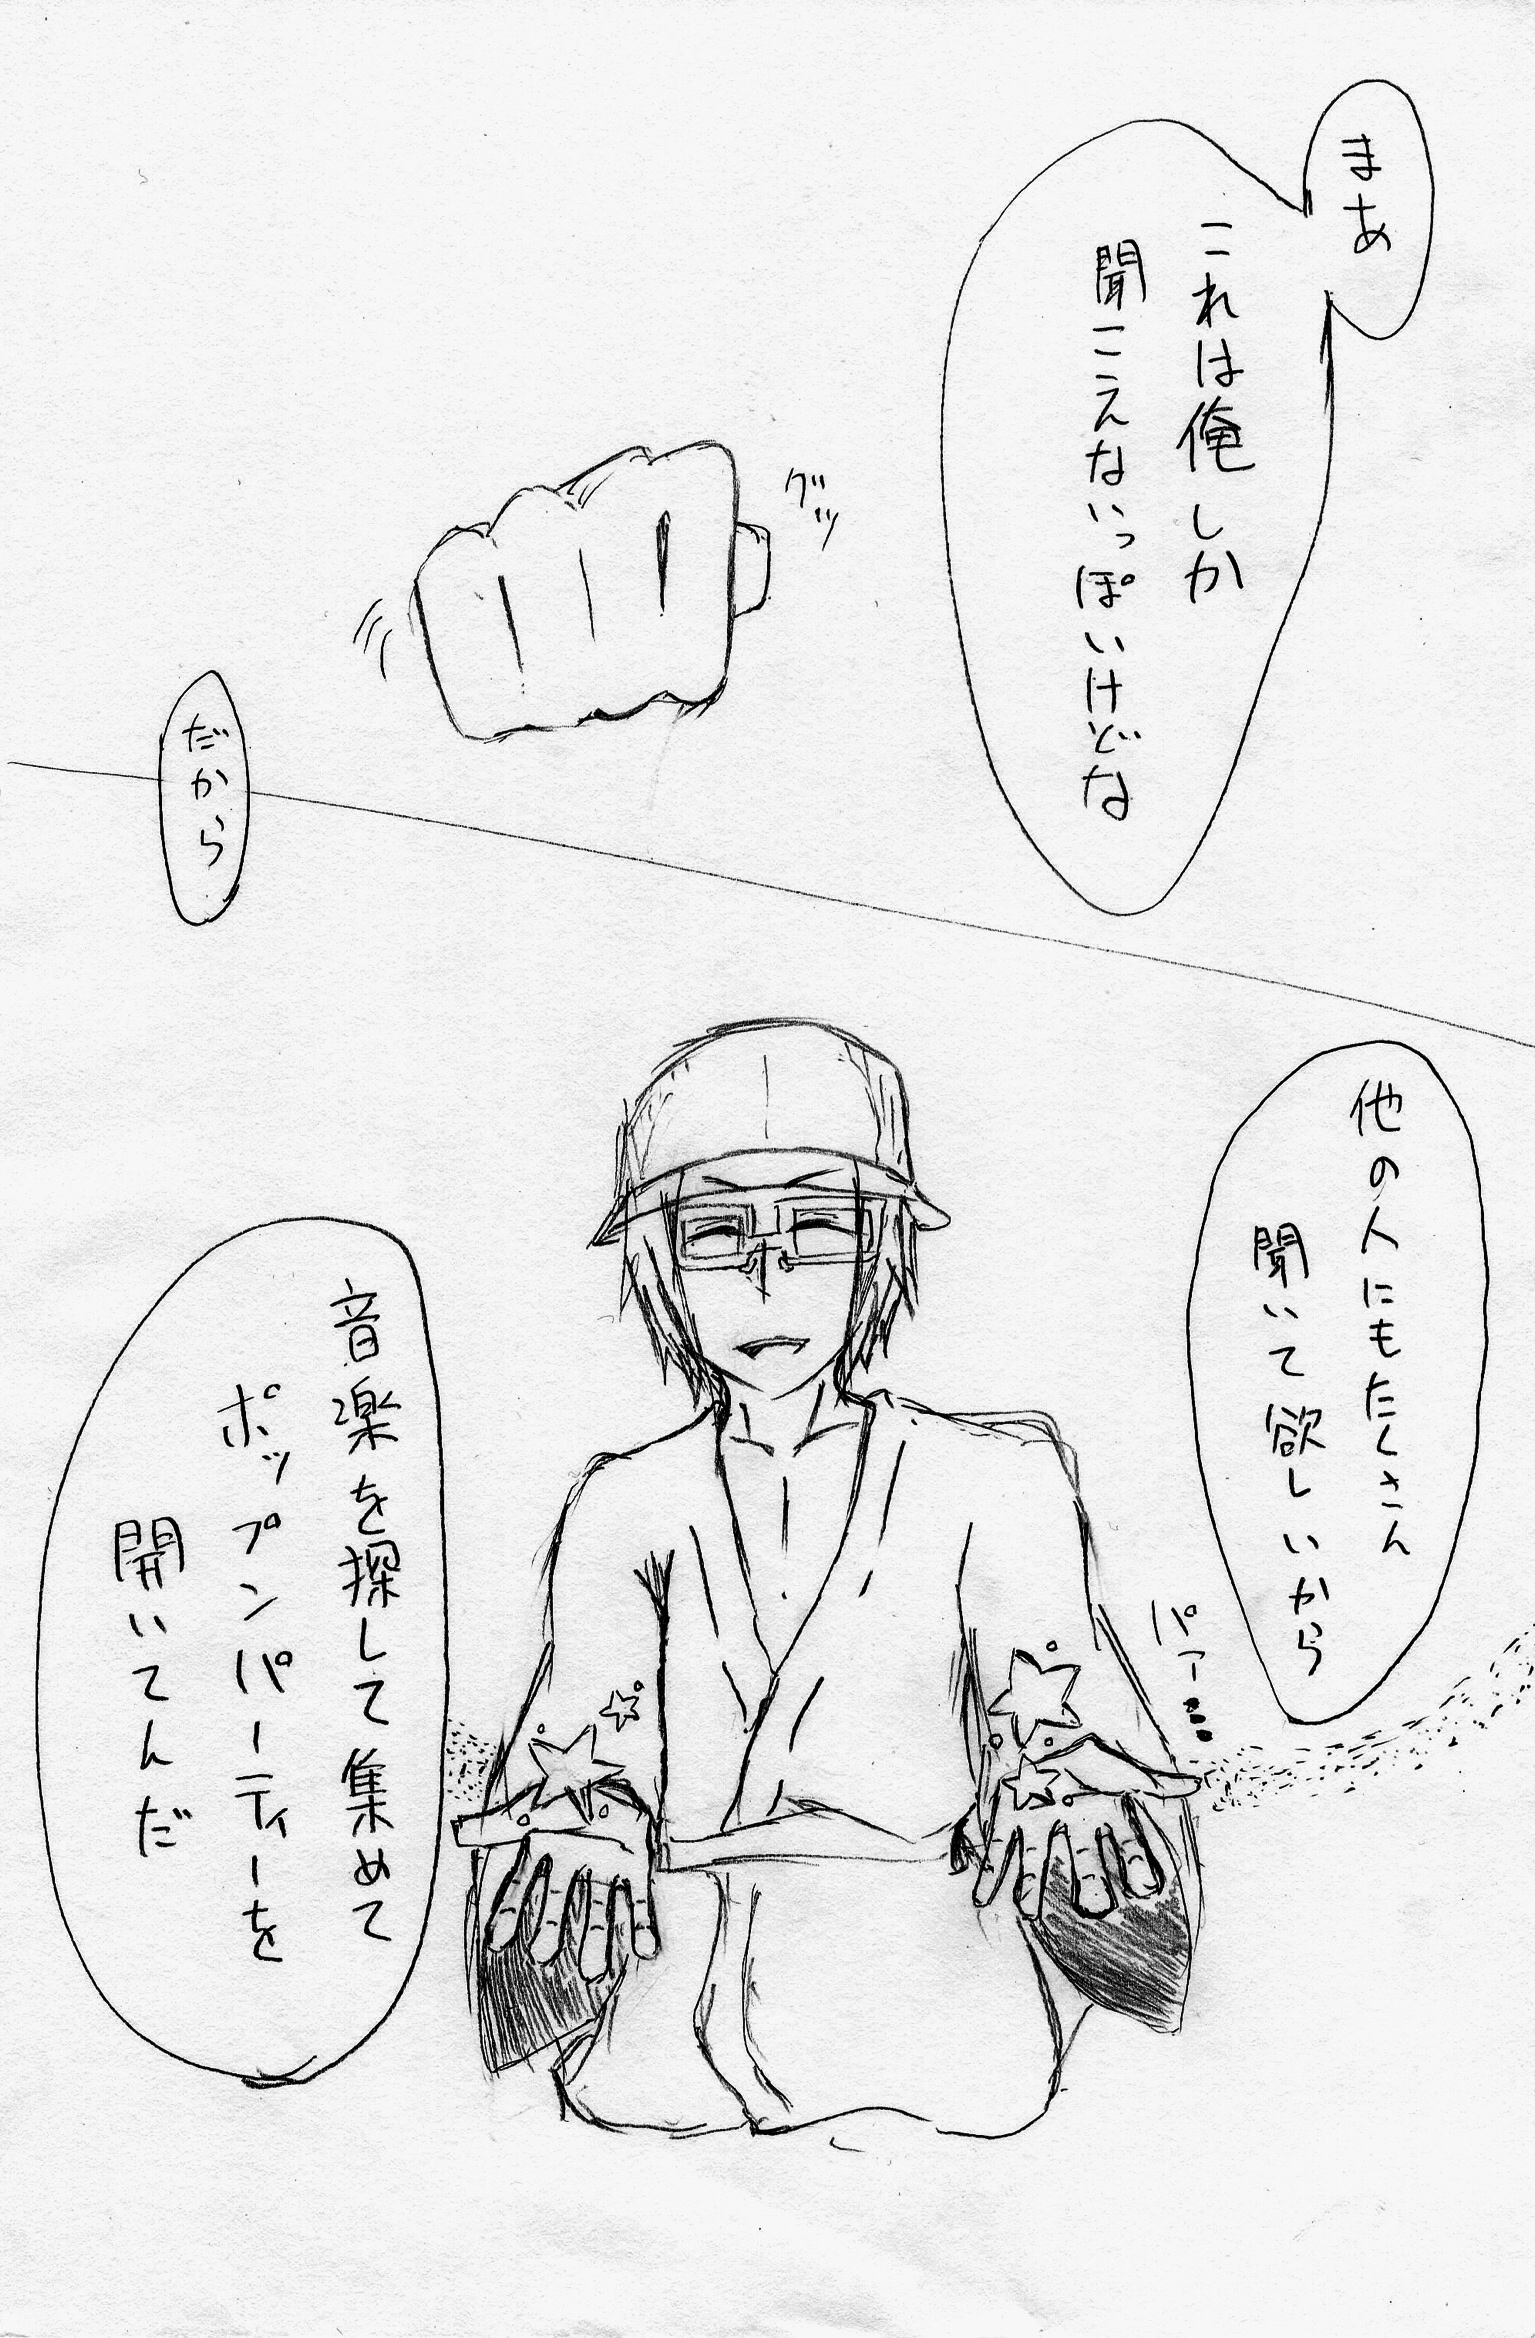 まあ
これは俺しか
聞こえないっぽいけどな
グッ
だから
他の人にもたくさん
聞いて欲しいから
パァ…
音楽を探して集めて
ポップンパーティーを
開いてんだ